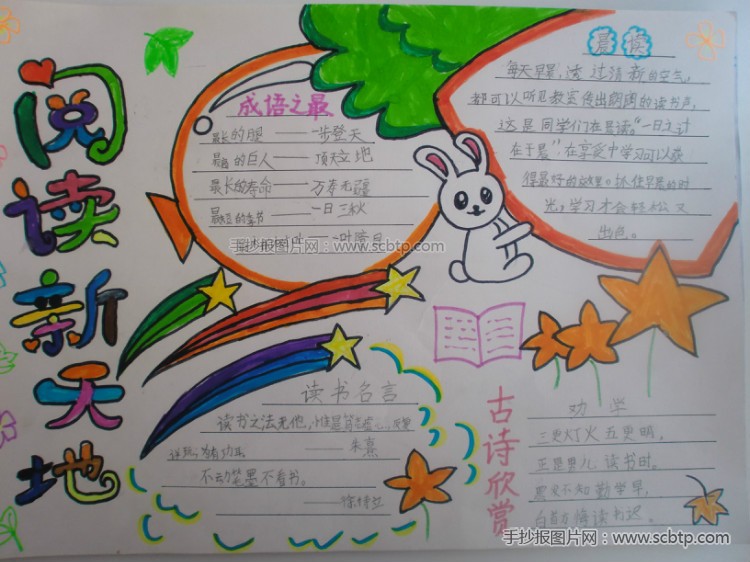 阅读新天地
成语之最
最长的腿——一步登天
最高的巨人——顶天立地
最长的寿命——万寿无疆
最短的季节——一日三秋
一叶障目
手抄报图片网：www.scbtp.com
晨读
每天早晨，透过清新的空气，
都可以听见教室传出朗朗的读书声，
这是同学们在晨读。"一日之计
在于晨"，在享受中学习可以获
得最好的效果，抓住早晨的时
光，学习才会轻松又
出色。
读书名言
读书之法无他，惟是笃志虚心，反复
详玩，为有功耳。
——朱熹
不动笔墨不看书。
——徐特立
古诗欣赏
劝学
三更灯火五更明，
正是男儿读书时。
黑发不知勤学早，
白首方悔读书迟。
手抄报图片网：www.scbtp.com